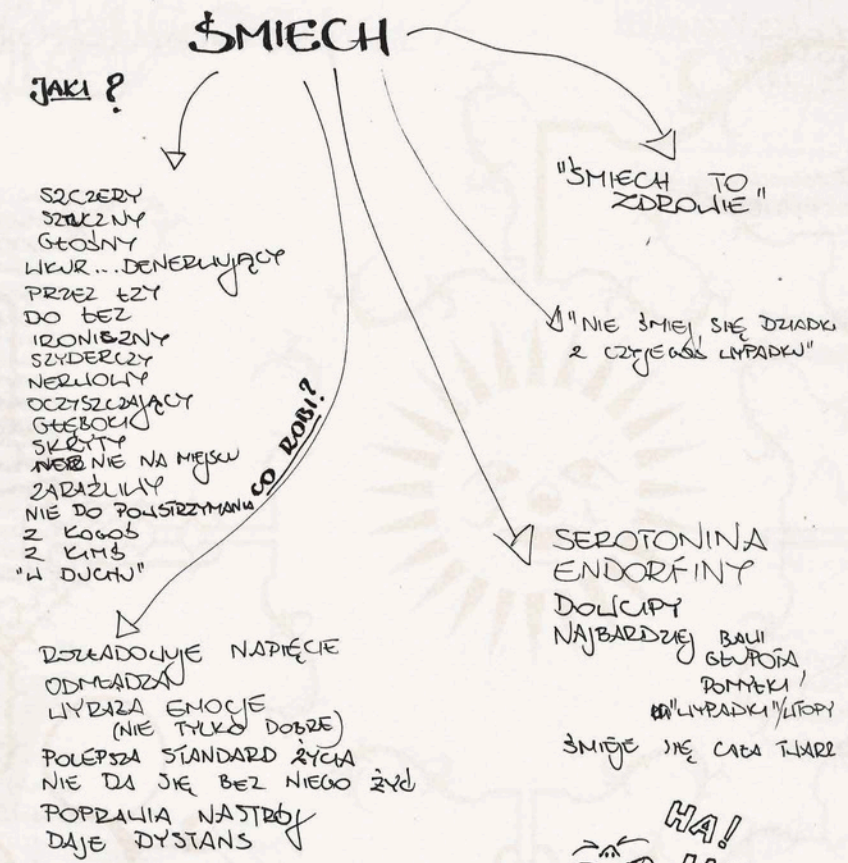 ŚMIECH
JAKI ?
SZCZERY
SZTUCZNY
GŁOŚNY
WKUR...DENERWUJĄCY
PRZEZ ŁZY
DO ŁEZ
IRONICZNY
SZYDERCZY
NERWOWY
OCZYSZCZAJĄCY
GŁĘBOKI
SKRYTY
NIE NA MIEJSCU
ZARAŹLIWY
NIE DO POWSTRZYMANIA
Z KOGOŚ
Z KIMŚ
"W DUCHU"
CO ROBI?
ROZŁADOWUJE NAPIĘCIE
ODMŁADZA
WYRAŻA EMOCJE
(NIE TYLKO DOBRE)
POLEPSZA STANDARD ŻYCIA
NIE DA SIĘ BEZ NIEGO ŻYĆ
POPRAWIA NASTRÓJ
DAJE DYSTANS
"ŚMIECH TO
ZDROWIE"
"NIE ŚMIEJ SIĘ DZIADKU
Z CZYJEGOŚ WYPADKU"
SEROTONINA
ENDORFINY
DOWCIPY
NAJBARDZIEJ BAWI
GŁUPOTA,
POMYŁKI,
"WYPADKI"/WTOPY
ŚMIEJE SIĘ CAŁA TWARZ
HA!